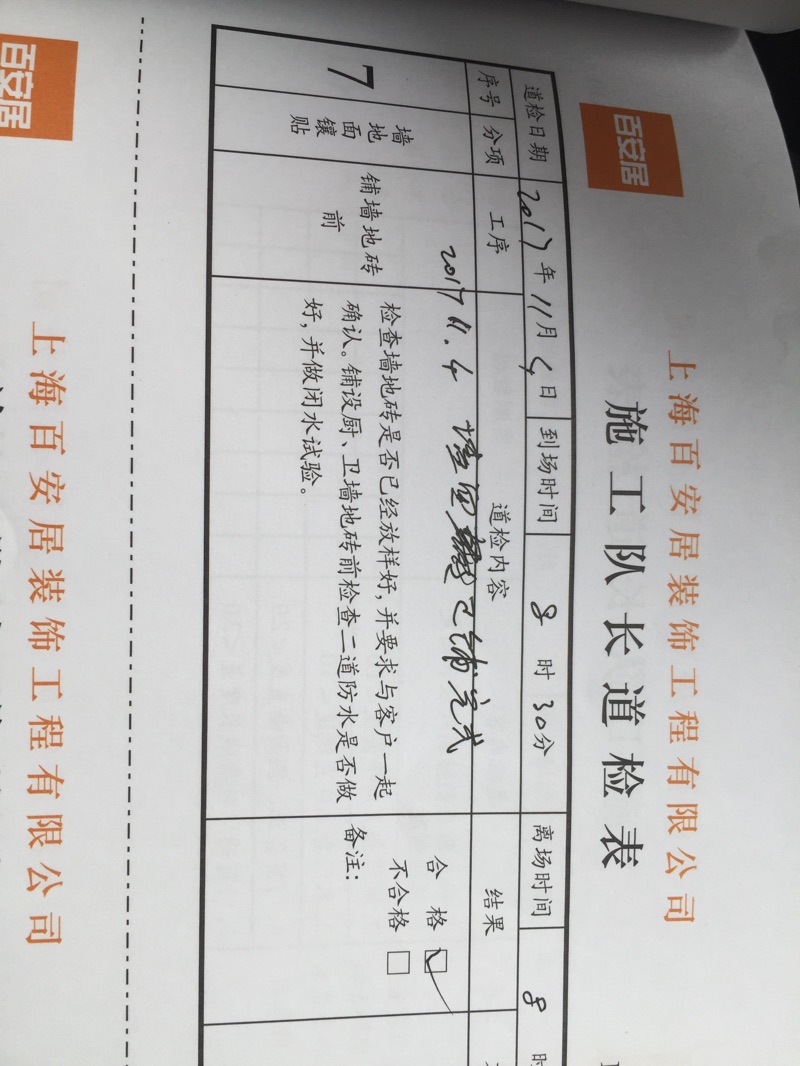 百安居
上海百安居装饰工程有限公司
施工队长道检表
道检日期 2017年11月4日 到场时间 8时30分 离场时间 8时
序号 分项 工序 道检内容 结果
2017.11.4 已铺完成
7
墙
地
面
镶
贴
铺墙地砖
前
检查墙地砖是否已经放样好,并要求与客户一起
确认。铺设厨、卫墙地砖前检查二道防水是否做
好,并做闭水试验。
合格
不合格
备注:
百安居
上海百安居装饰工程有限公司